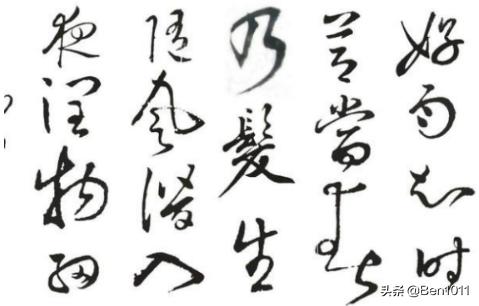 好雨知时
节當春
乃髮生
随风潜入
夜润物细
头条 @Ben1011